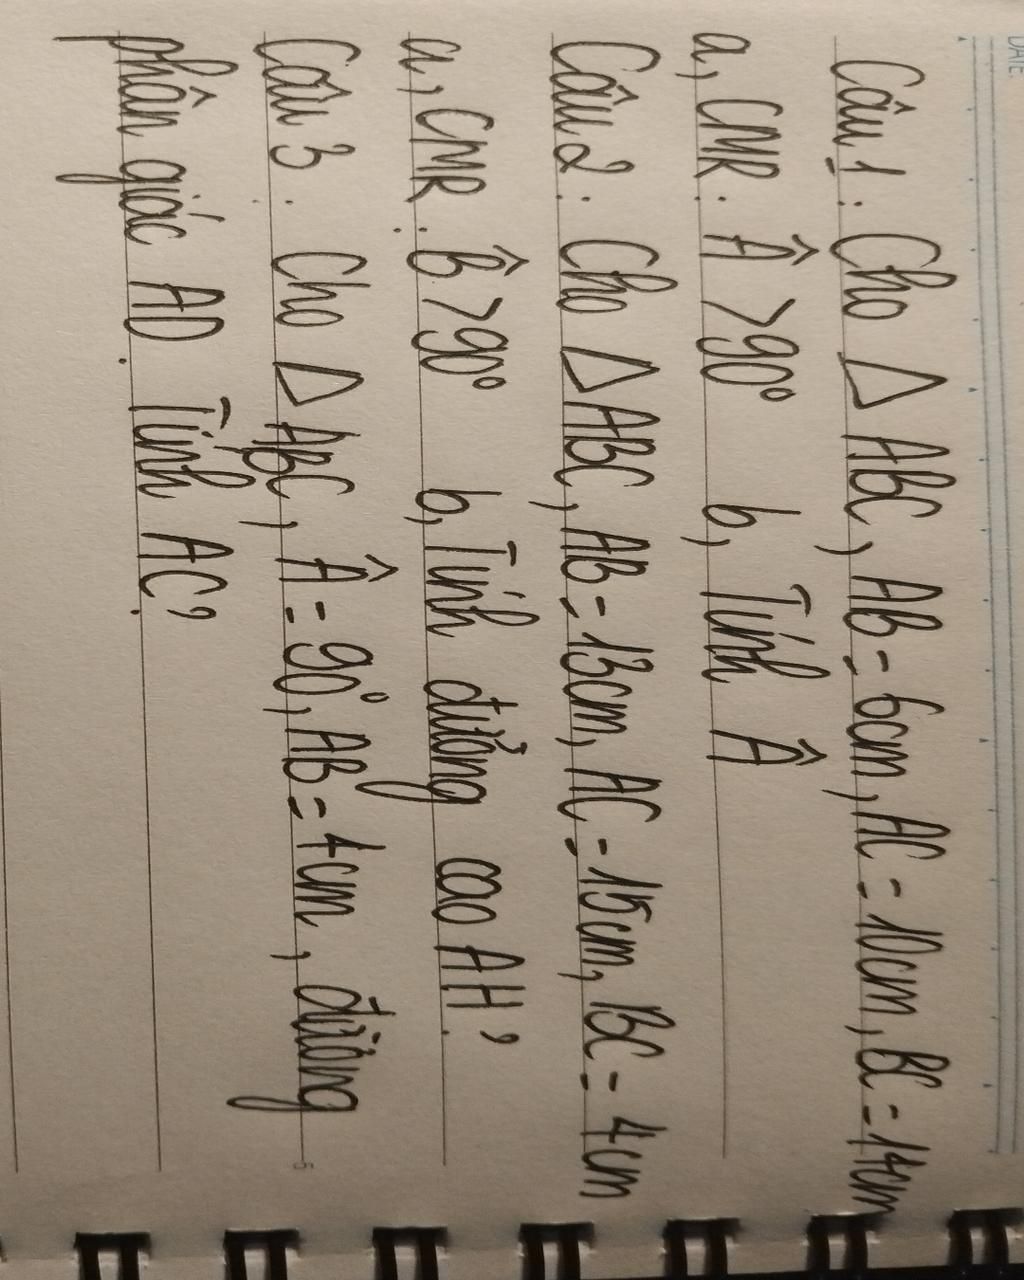 DATE
Câu 1: Cho △ ABC, AB = 6cm, AC = 10cm, BC = 14cm
a, CMR: Â > 90° b, Tính Â
Câu 2: Cho △ ABC, AB = 13cm, AC = 15cm, BC = 4cm
a, CMR: B̂ > 90° b, Tính đường cao AH?
Câu 3: Cho △ ABC, Â = 90°, AB = 4cm, đường
phân giác AD. Tính AC?
5